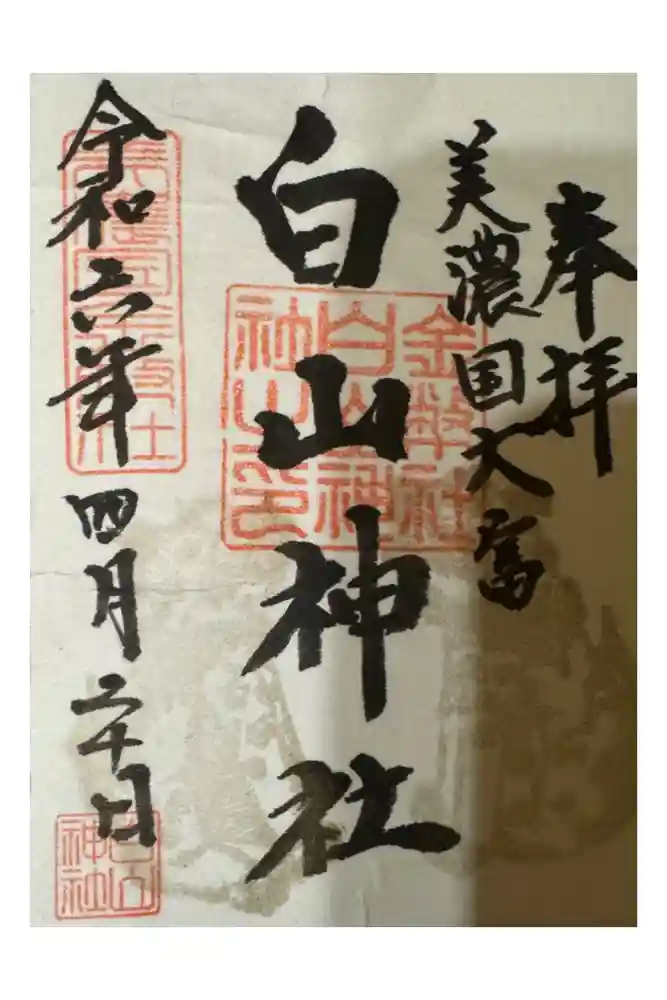 奉拝
美濃国大奮
白山神社
令和六年四月二十日
金幣社
白山神
社山印
白山
神社